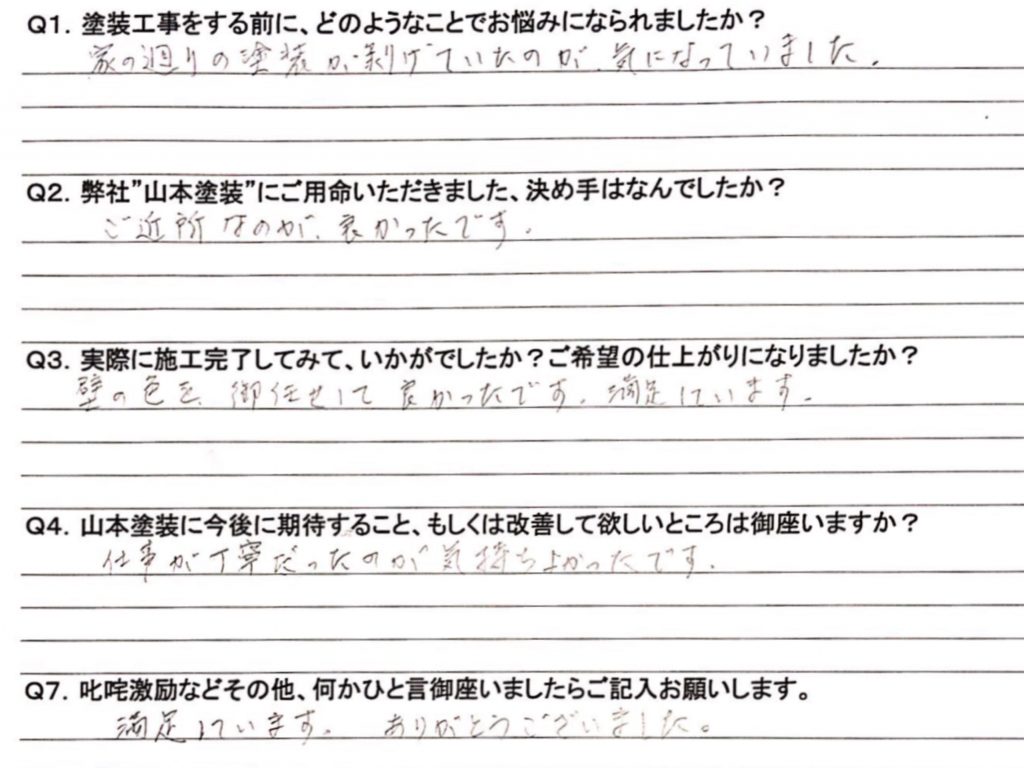 Q1. 塗装工事をする前に、どのようなことでお悩みになられましたか？
家の廻りの塗装が剥げていたのが、気になっていました。
Q2. 弊社”山本塗装”にご用命いただきました、決め手はなんでしたか？
ご近所なのが、良かったです。
Q3. 実際に施工完了してみて、いかがでしたか？ご希望の仕上がりになりましたか？
壁の色を、御任せして良かったです。満足しています。
Q4. 山本塗装に今後に期待すること、もしくは改善して欲しいところは御座いますか？
仕事が丁寧だったのが気持ちよかったです。
Q7. 叱咤激励などその他、何かひと言御座いましたらご記入お願いします。
満足しています。 ありがとうございました。